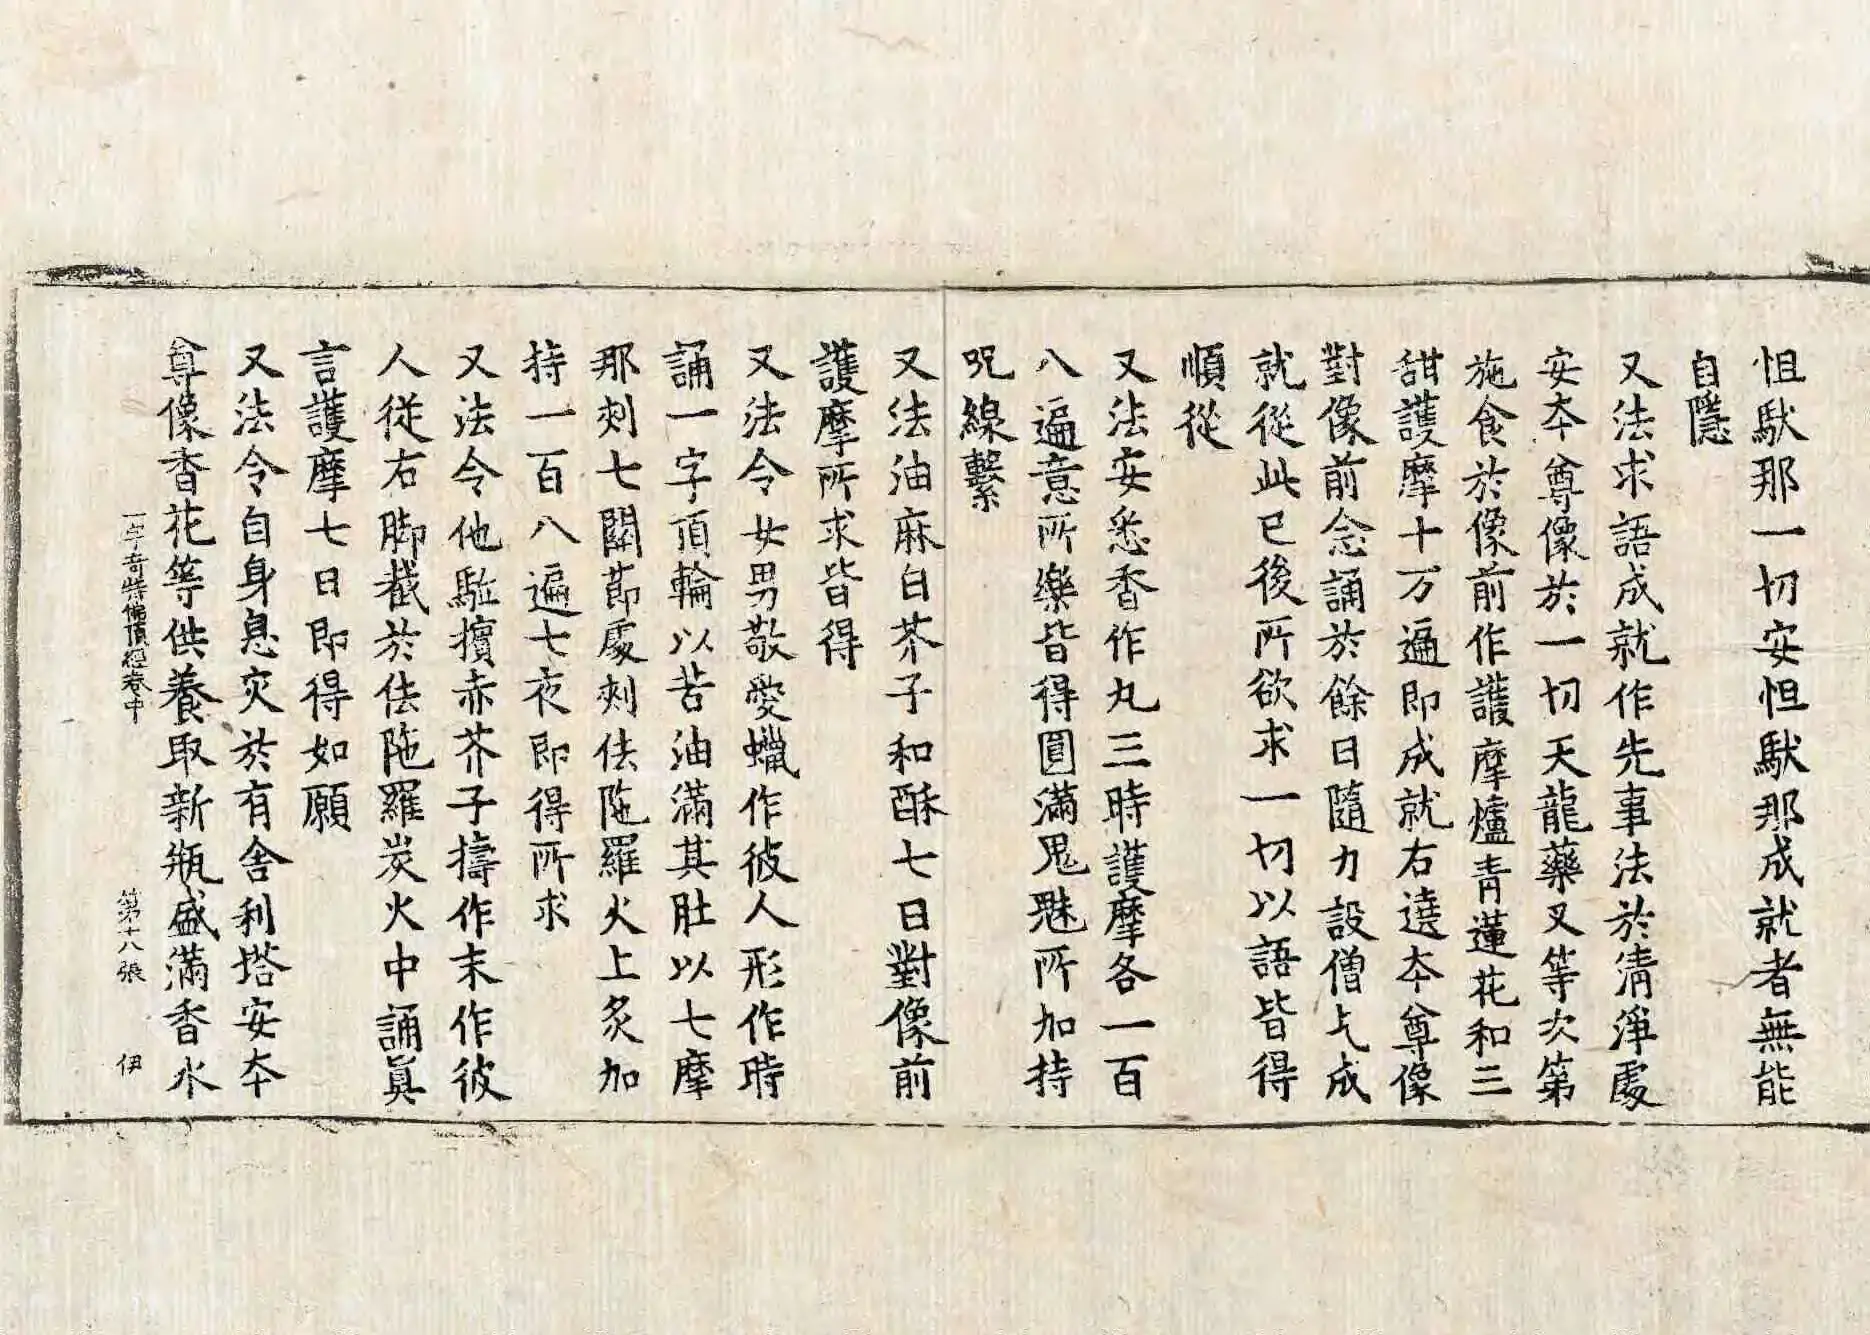 怛駄那一切安怛駄那成就者無能
自隱
又法求語成就作先事法於清淨處
安夲尊像於一切天龍藥叉等次第
施食於像前作護摩爐青蓮花和三
甜護摩十万遍即成就右遶夲尊像
對像前念誦於餘日隨力設僧乞成
就從此已後所欲求一切以語皆得
順從
又法安悉香作丸三時護摩各一百
八遍意所樂皆得圓滿鬼魅所加持
呪線繫
又法油麻白芥子和酥七日對像前
護摩所求皆得
又法令女男敬愛蠟作彼人形作時
誦一字頂輪以苦油滿其肚以七摩
那刾七關莭處刾佉陁羅火上炙加
持一百八遍七夜即得所求
又法令他駈擯赤芥子擣作末作彼
人從右脚截於佉陁羅炭火中誦眞
言護摩七日即得如願
又法令自身息灾於有舍利塔安夲
尊像香花等供養取新瓶盛滿香水
一字奇特佛頂經卷中 第十八張 伊